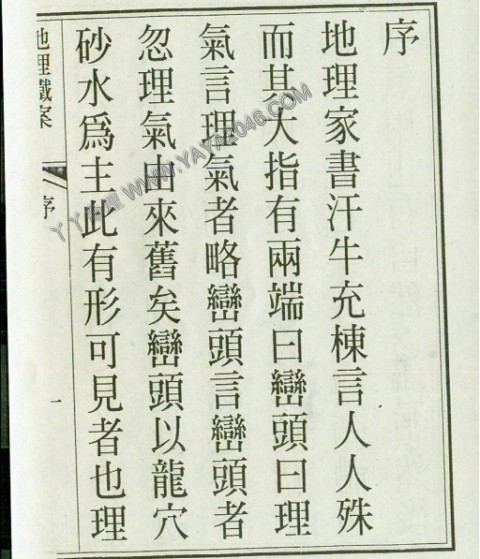 序
地理家書汗牛充棟言人人殊
而其大指有兩端曰巒頭曰理
氣言理氣者略巒頭言巒頭者
忽理氣由來舊矣巒頭以龍穴
砂水爲主此有形可見者也理
地理鐵案
序
一
WWW.YAYA2046.COM